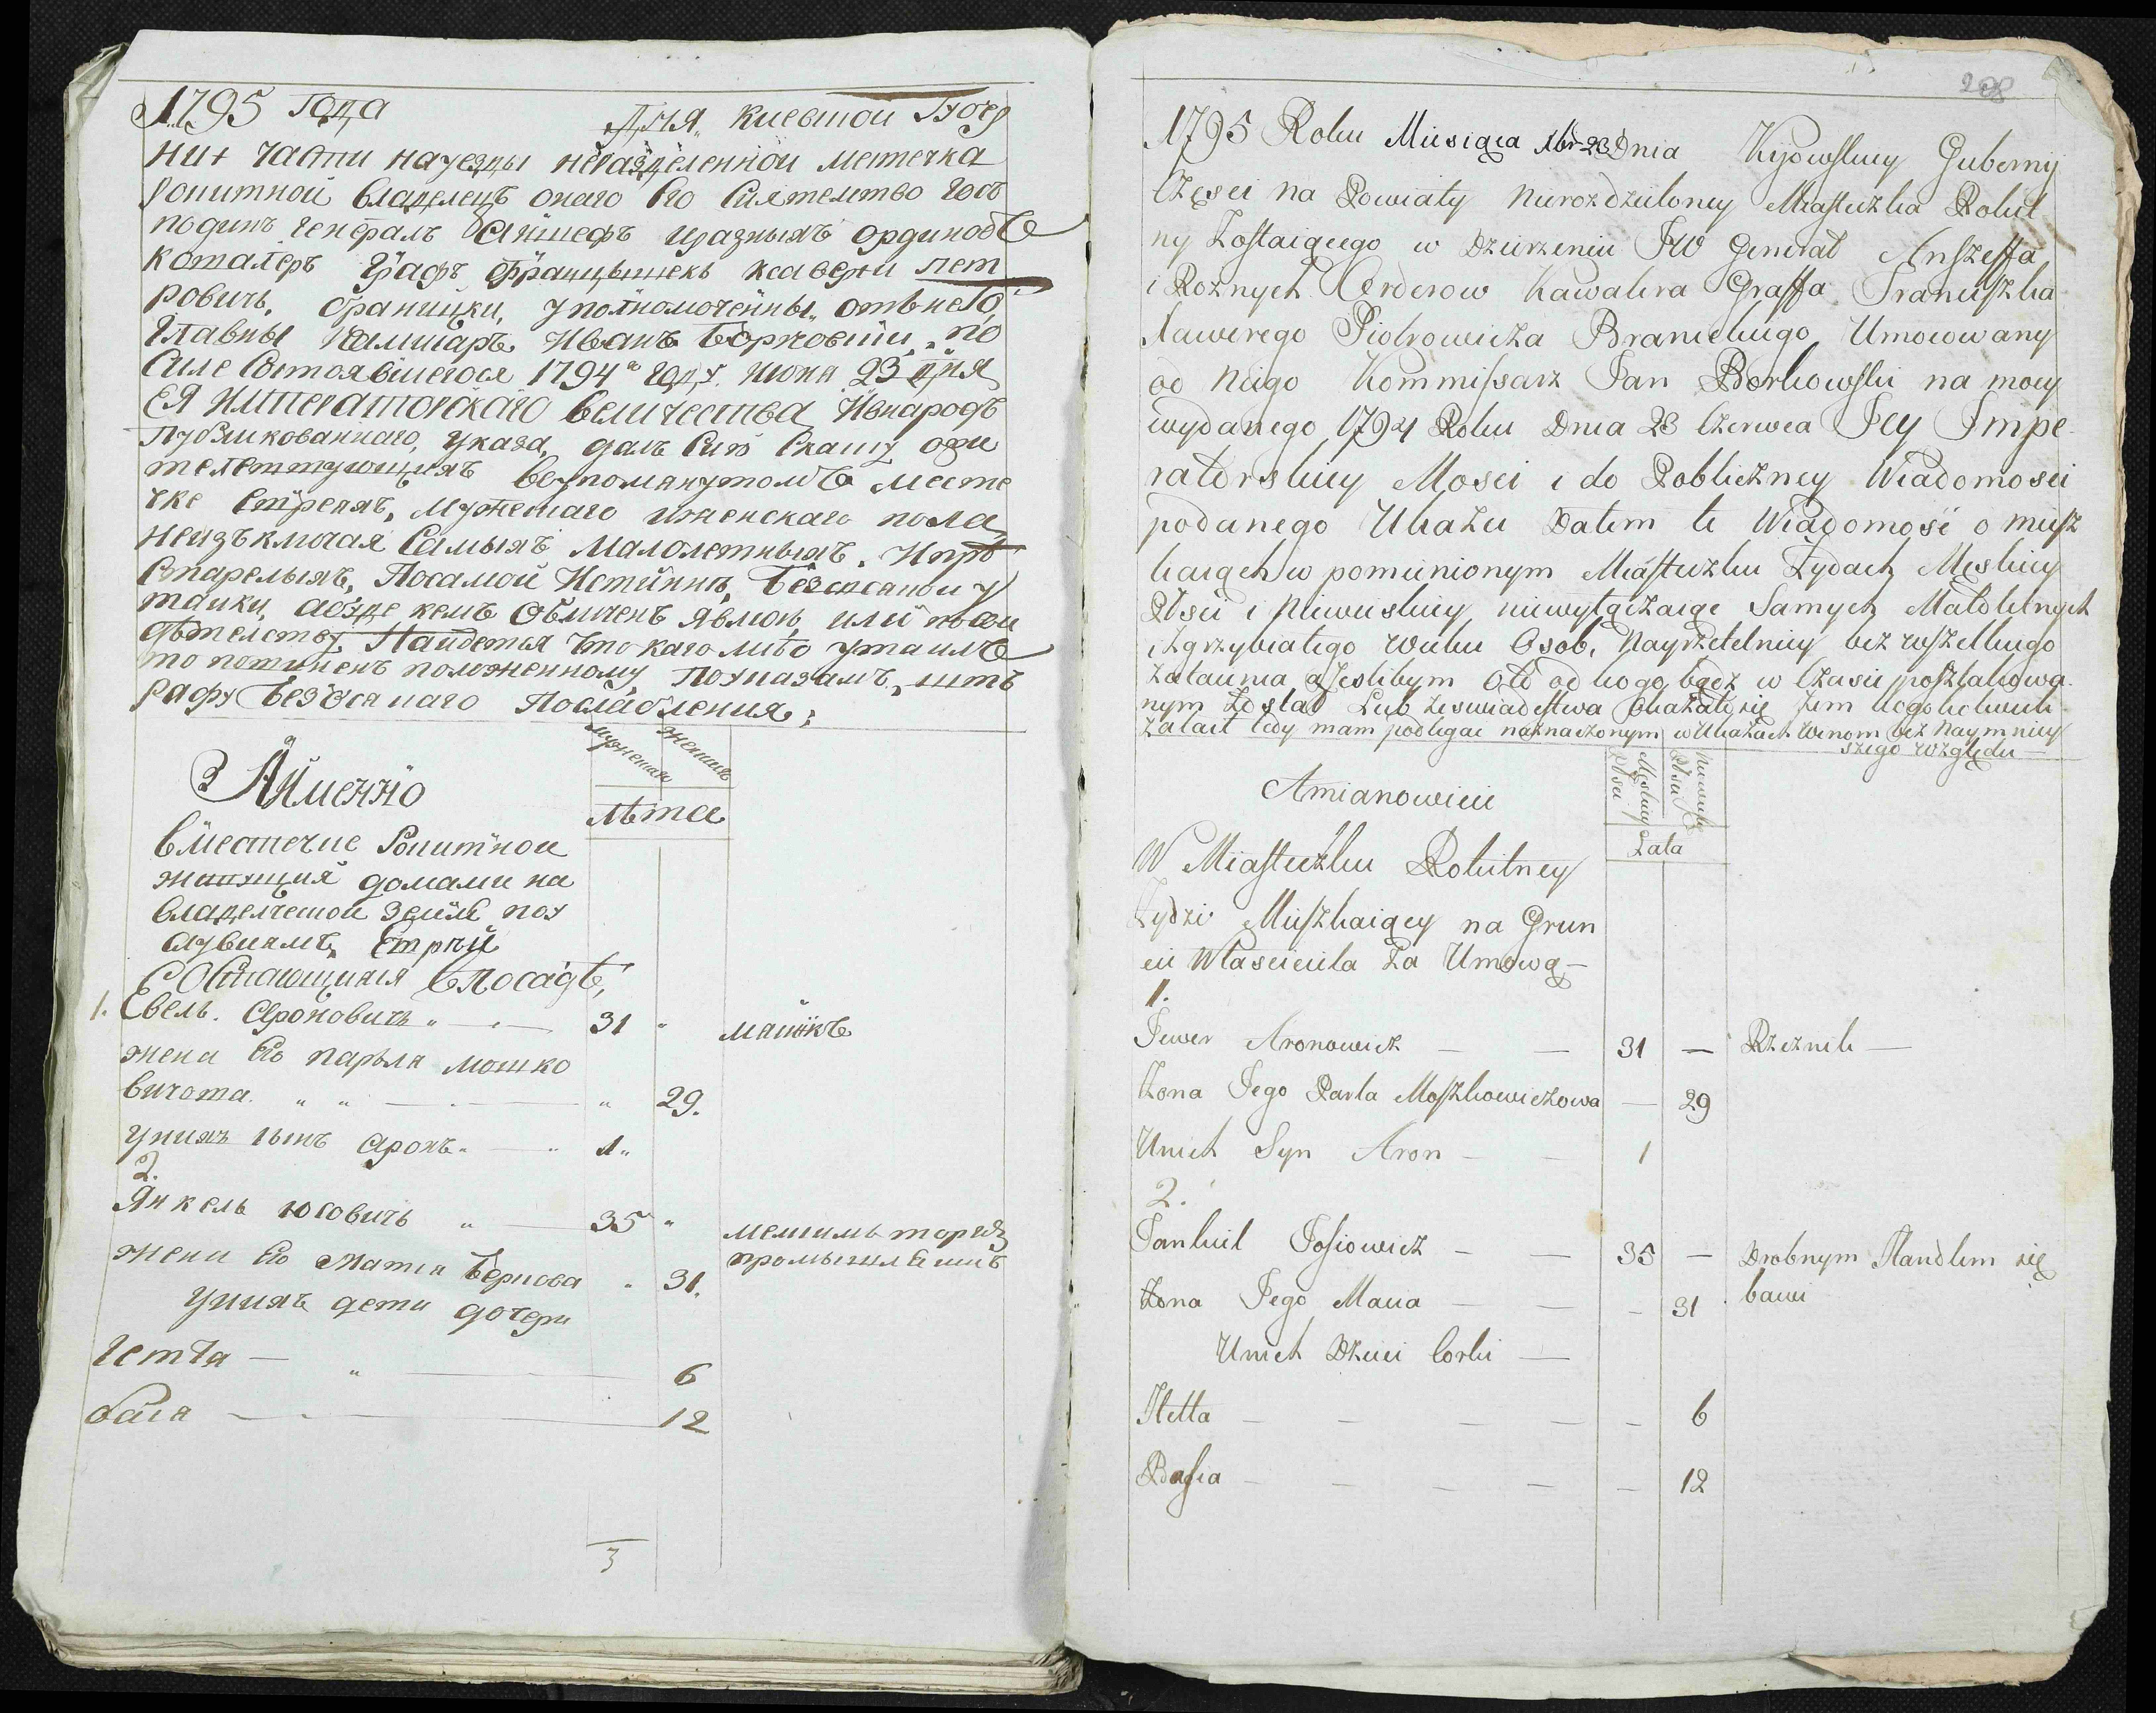 1795 года Дня Киевской Губер
нии части науезды неразделенной местечка
рокитной владелецъ онаго Его Сиятелство Госъ
подинъ Генералъ Аншефъ иразныхъ ординовъ
кавалеръ Графъ Францышекъ ксавери пет
ровичъ, браницки, уполномоченны отънего,
Главны камисаръ Иванъ Борковски, по
Силе Состоявшегося 1794го году июня 23 дня
ЕЯ Императорскаго Величества Ивнародъ
публикованнаго, указа, далъ Сию Скаску оЖи
телствующихъ ввупомянутомъ месте
чке Евреяхъ, Мужескаго иженскаго пола
неизъключая Самыхъ малолетныхъ, Ипре
старелыхъ, Посамой Истинне, безвсякои у
таики, аежде кемъ обличенъ явлюсь или посви
детелству Найдется что каголибо утаилъ
то повиненъ положенному, поуказамъ, штъ
рафу безвсякаго Послабления;
мужеска женска
Аименно
лѣта
вместечке Рокитнои
живущия домами на
владелческой земле поу
словиямъ Евреи
Состоящимися впосаде,
1. Евель Ароновичъ 31 мяснікъ
жена Его парля мошко
вичова 29.
унихъ сынъ аронъ 1
2.
Янкель юсовичъ 35 мелкимъ торгомъ
промышляетъ
жена Его Матя Беркова 31.
унихъ дети дочери
гетта 6
бася 12
3
208
1795 Roku Miesiąca 1br 23 Dnia Kyowskiey Guberny
Częsci na Powiaty Nierozdzieloney Miasteczka Rokit
ny Zostaiącego w Dzierzeniu JW General Anszeffa
i Roznych Orderow Kawalera Graffa Franciszka
Xawerego Piotrowicza Branickiego Umocowany
od Niego Kommissarz Jan Borkowski na mocy
wydanego 1794 Roku Dnia 23 Czerwca Jey Impe-
ratorskiey Mosci i do Publiczney Wiadomosci
podanego Ukazu Dałem te Wiadomość o miesz
kaiących w pomienionym Miasteczku Żydach Męskiey
Płci i Niewieskiey niewyłączaiąc Samych Małoletnych
i Zgrzybiałego wieku Osob, Nayrzetelniey bez wszelkiego
Zataienia a Jeslibym Oto od kogo bądz w Czasie poszlakowa-
nym Został Lub Zeswiadectwa Okazało się Zem kogokolwiek
Zataił tedy mam podlegac naznaczonym w Ukazach Winom bez Naymniey
szego względu
Amianowicie
Męskiey Płci
Niewieskiey Płci
Lata
W Miasteczku Rokitney
Żydzi Mieszkaiący na Grun
cie Własciciela Za Umową
1.
Jewer Aronowicz 31 Rzeznik
Zona Jego Parla Moszkowiczowa 29
Unich Syn Aron 1
2.
Jankiel Josiowicz 35 Drobnym Handlem się
bawi
Zona Jego Macia 31
Unich Dzieci Corki
Hetta 6
Basia 12